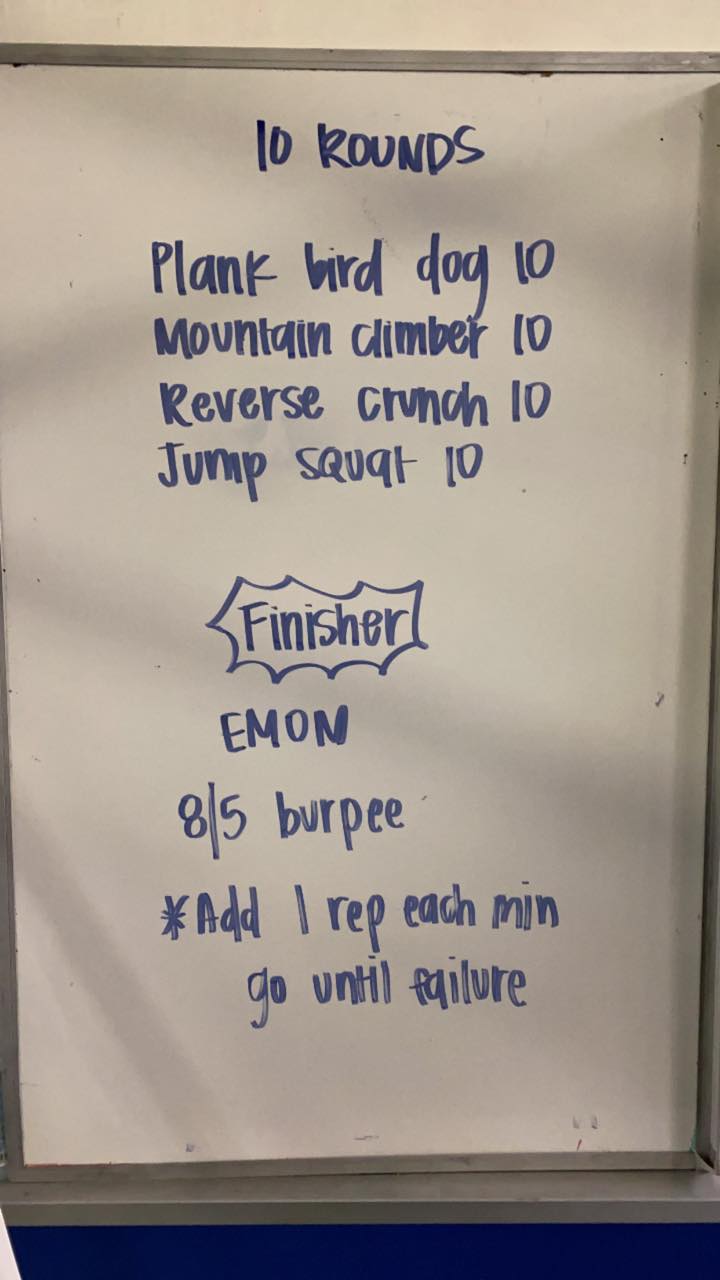 10 ROUNDS
Plank bird dog 10
Mountain climber 10
Reverse crunch 10
Jump squat 10
Finisher
EMON
8/5 burpee
*Add 1 rep each min
go until failure